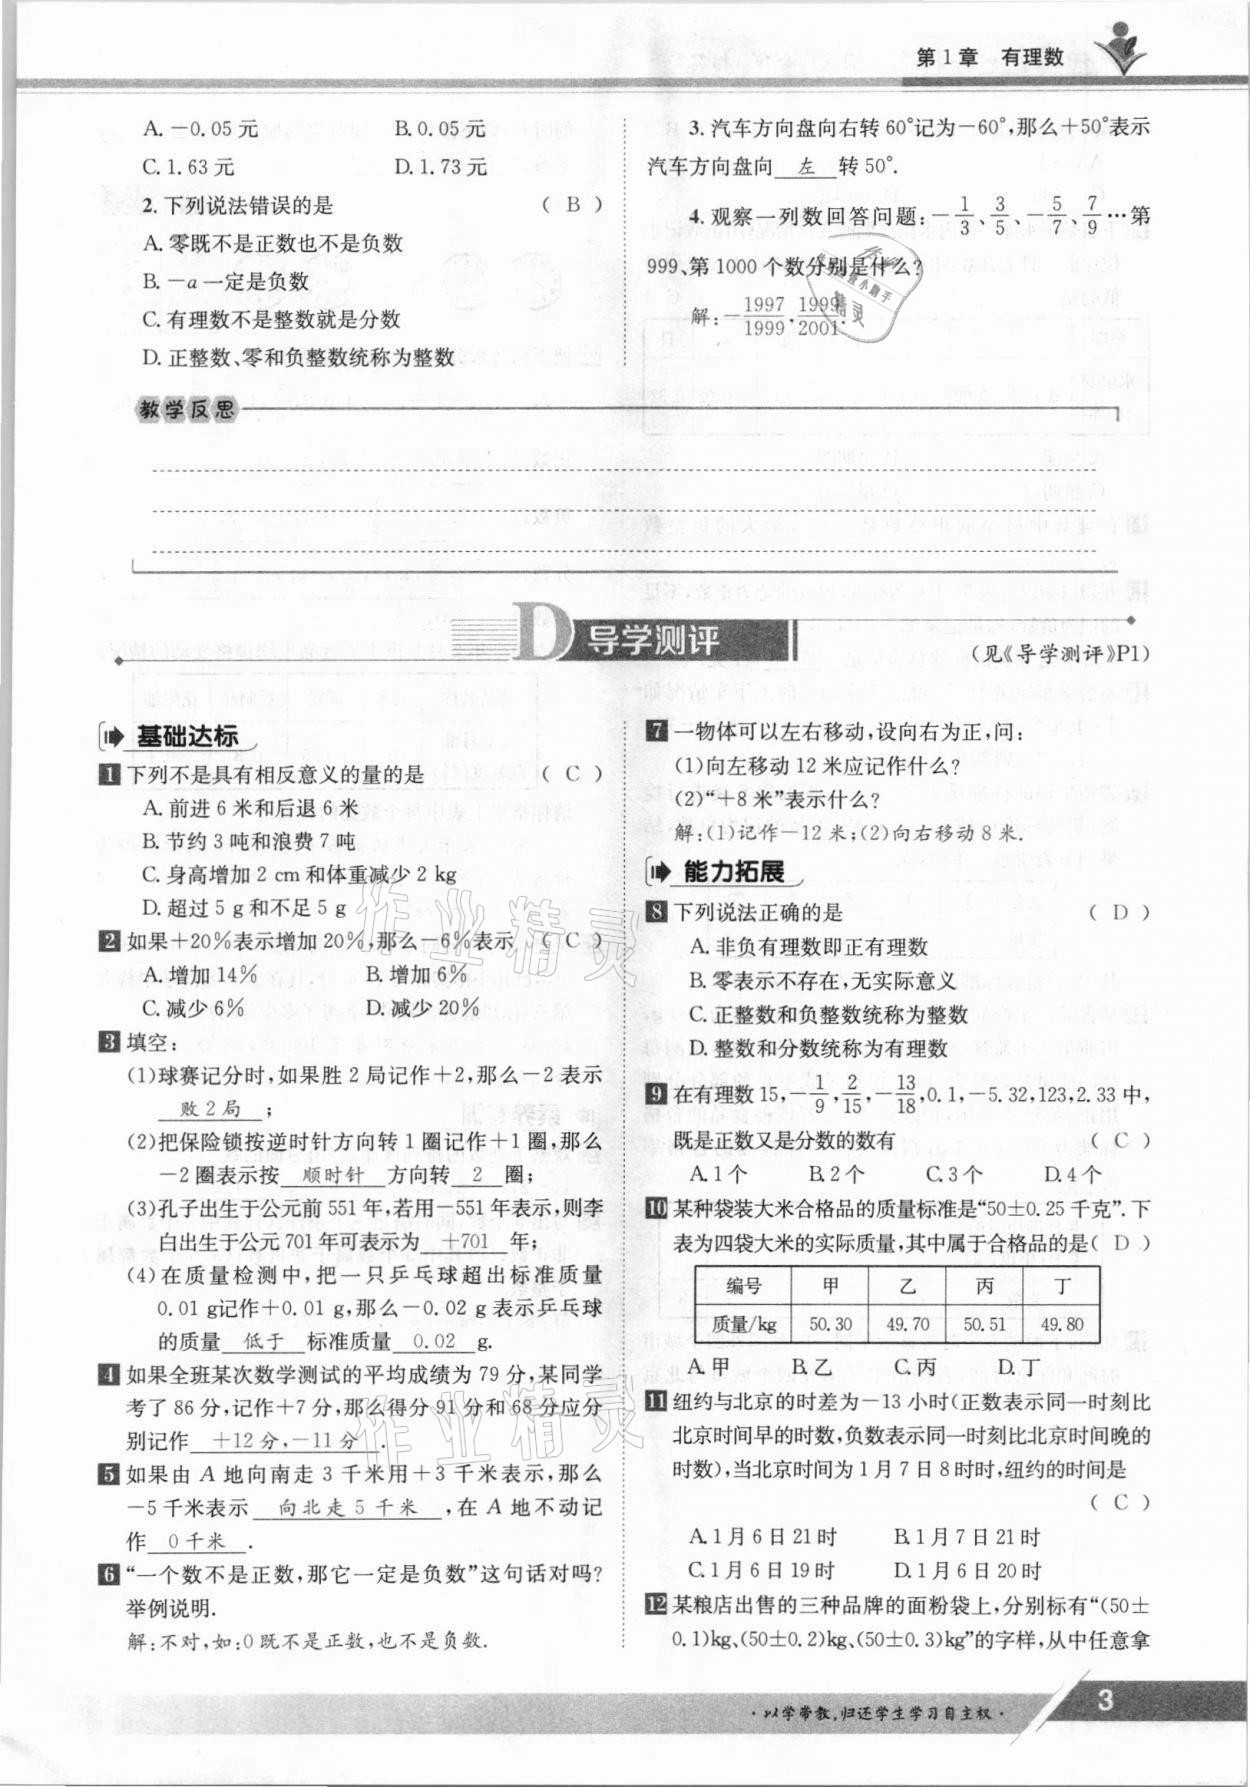 第1章 有理数
A. －0.05 元 B. 0.05 元
C. 1.63 元 D. 1.73 元
2. 下列说法错误的是 ( B )
A. 零既不是正数也不是负数
B. －a 一定是负数
C. 有理数不是整数就是分数
D. 正整数、零和负整数统称为整数
3. 汽车方向盘向右转 60°记为－60°,那么＋50°表示
汽车方向盘向 左 转 50°.
4. 观察一列数回答问题:－1/3、3/5、－5/7、7/9…第
999、第 1000 个数分别是什么?
解:－1997/1999.1999/2001.
教学反思
D 导学测评
(见《导学测评》P1)
基础达标
1 下列不是具有相反意义的量的是 ( C )
A. 前进 6 米和后退 6 米
B. 节约 3 吨和浪费 7 吨
C. 身高增加 2 cm 和体重减少 2 kg
D. 超过 5 g 和不足 5 g
2 如果＋20%表示增加 20%,那么－6%表示 ( C )
A. 增加 14% B. 增加 6%
C. 减少 6% D. 减少 20%
3 填空:
(1)球赛记分时,如果胜 2 局记作＋2,那么－2 表示
败 2 局 ;
(2)把保险锁按逆时针方向转 1 圈记作＋1 圈,那么
－2 圈表示按 顺时针 方向转 2 圈;
(3)孔子出生于公元前 551 年,若用－551 年表示,则李
白出生于公元 701 年可表示为 ＋701 年;
(4)在质量检测中,把一只乒乓球超出标准质量
0.01 g记作＋0.01 g,那么－0.02 g 表示乒乓球
的质量 低于 标准质量 0.02 g.
4 如果全班某次数学测试的平均成绩为 79 分,某同学
考了 86 分,记作＋7 分,那么得分 91 分和 68 分应分
别记作 ＋12 分,－11 分 .
5 如果由 A 地向南走 3 千米用＋3 千米表示,那么
－5 千米表示 向北走 5 千米 ,在 A 地不动记
作 0 千米 .
6 “一个数不是正数,那它一定是负数”这句话对吗?
举例说明.
解:不对,如:0 既不是正数,也不是负数.
7 一物体可以左右移动,设向右为正,问:
(1)向左移动 12 米应记作什么?
(2)“＋8 米”表示什么?
解:(1)记作－12 米;(2)向右移动 8 米.
能力拓展
8 下列说法正确的是 ( D )
A. 非负有理数即正有理数
B. 零表示不存在,无实际意义
C. 正整数和负整数统称为整数
D. 整数和分数统称为有理数
9 在有理数 15,－1/9,2/15,－13/18,0.1,－5.32,123,2.33 中,
既是正数又是分数的数有 ( C )
A. 1 个 B. 2 个 C. 3 个 D. 4 个
10 某种袋装大米合格品的质量标准是“50±0.25 千克”. 下
表为四袋大米的实际质量,其中属于合格品的是( D )
编号 甲 乙 丙 丁
质量/kg 50.30 49.70 50.51 49.80
A. 甲 B. 乙 C. 丙 D. 丁
11 纽约与北京的时差为－13 小时(正数表示同一时刻比
北京时间早的时数,负数表示同一时刻比北京时间晚的
时数),当北京时间为 1 月 7 日 8 时时,纽约的时间是
( C )
A. 1 月 6 日 21 时 B. 1 月 7 日 21 时
C. 1 月 6 日 19 时 D. 1 月 6 日 20 时
12 某粮店出售的三种品牌的面粉袋上,分别标有“(50±
0.1)kg、(50±0.2)kg、(50±0.3)kg”的字样,从中任意拿
·以学带教,归还学生学习自主权·
3
作业精灵
作业精灵